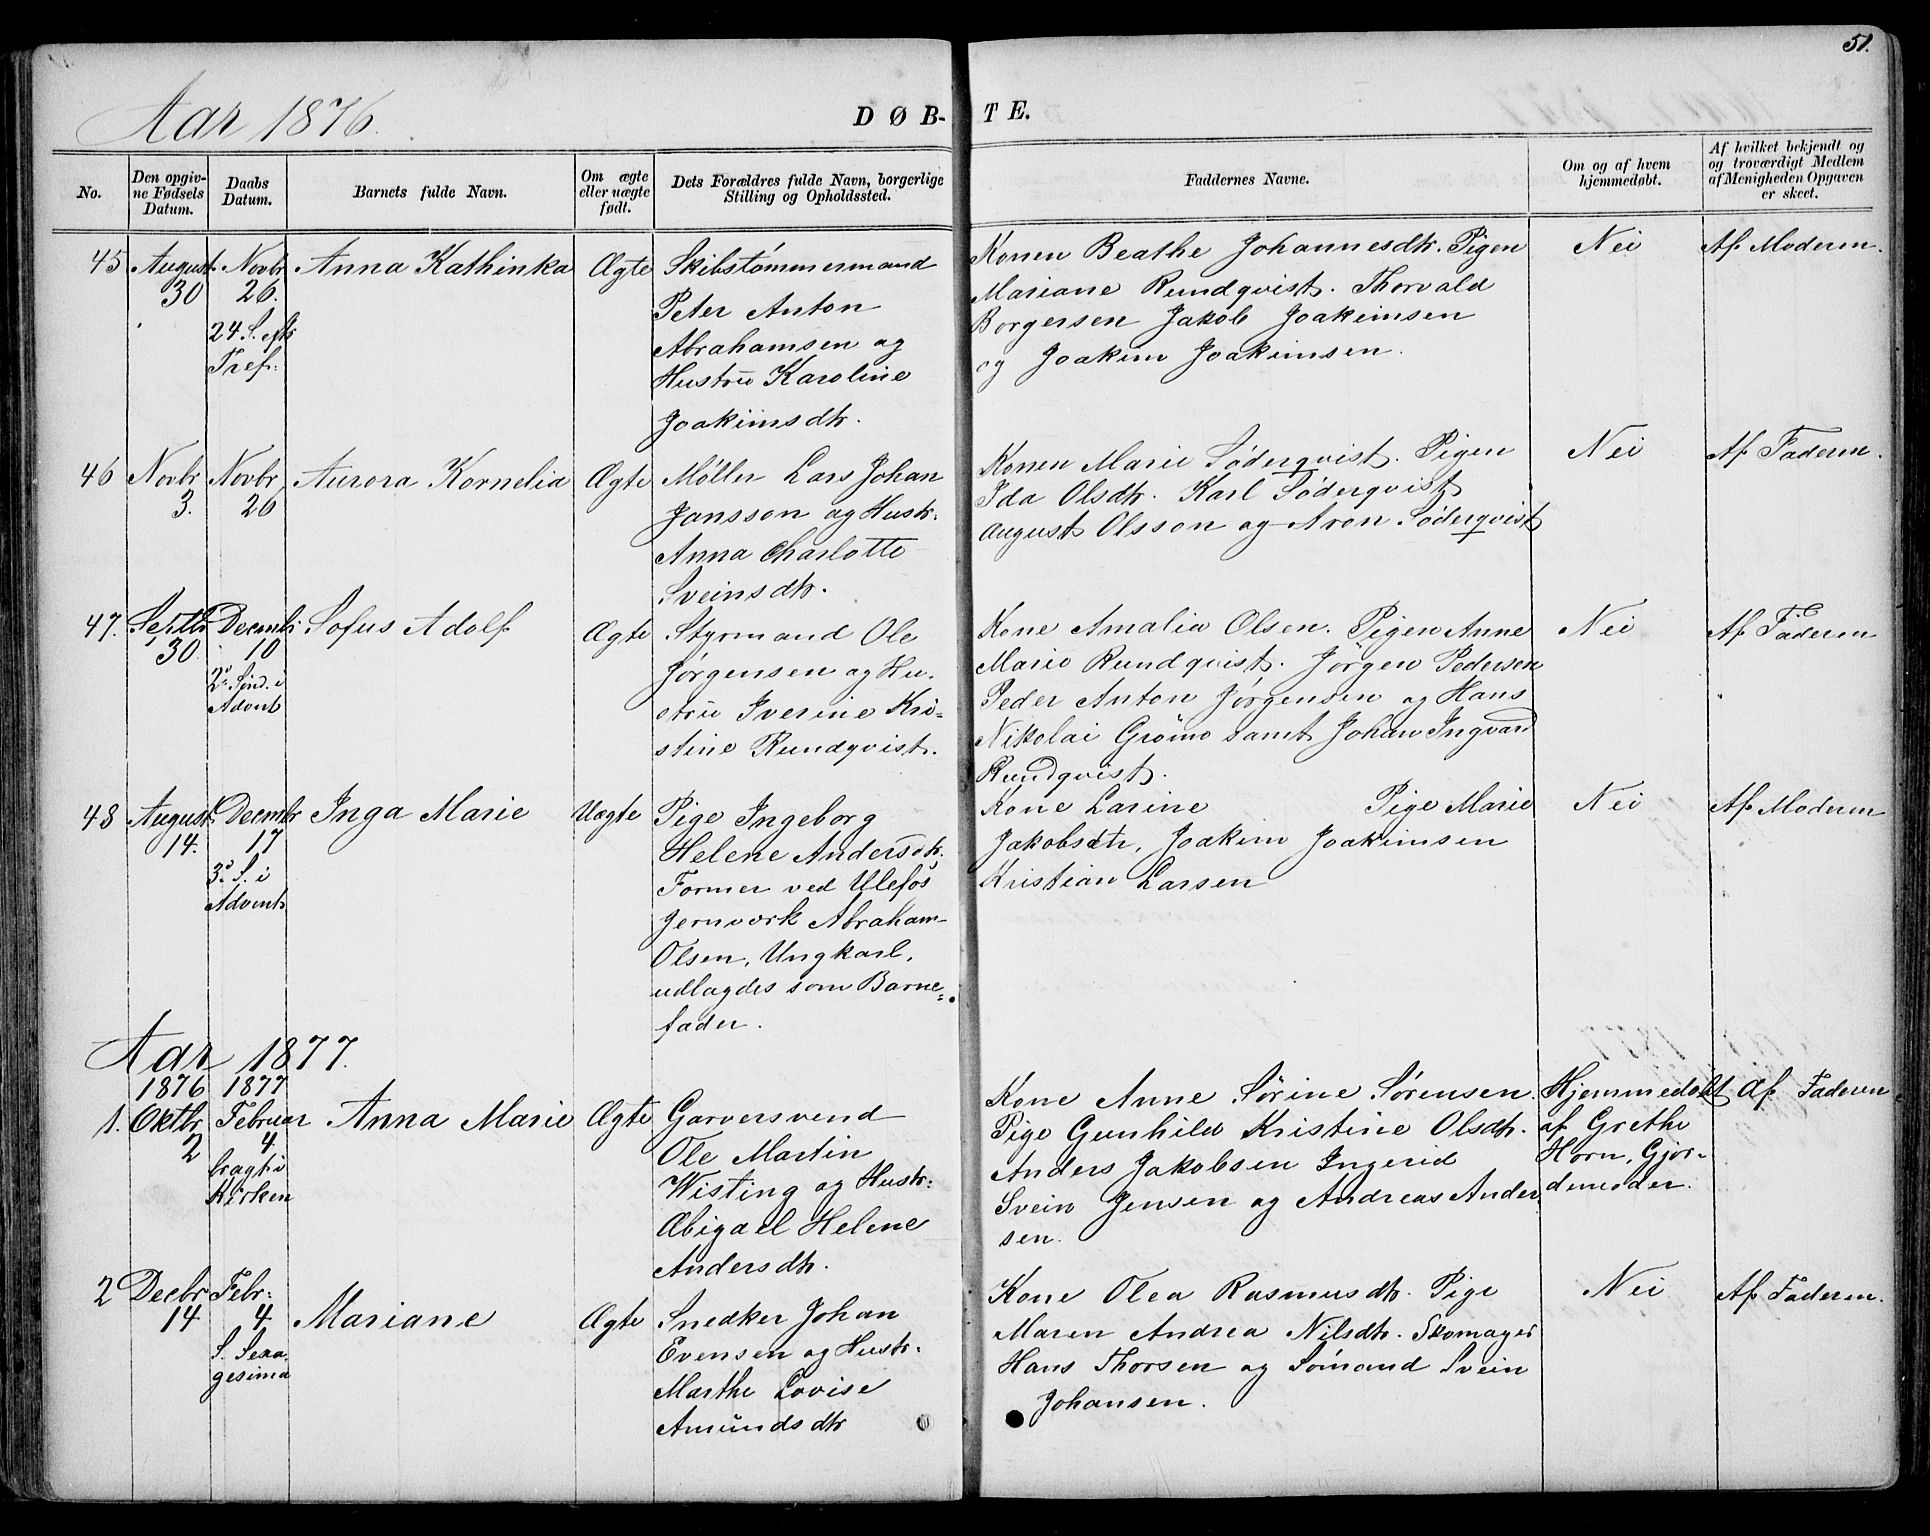 51.
Aar 1876.
DØB-TE.
No.
Den opgiv-
ne Fødsels
Datum.
Daabs
Datum.
Barnets fulde Navn.
Om ægte
eller uægte
født.
Dets Forældres fulde Navn, borgerlige
Stilling og Opholdssted.
Faddernes Navne.
Om og af hvem
hjemmedøbt.
Af hvilket bekjendt og
og troværdigt Medlem
af Menigheden Opgaven
er skeet.
45
August
30
Novbr
26.
24. S. eftr
Tref.
Anna Kathinka
Ægte
Skibstømmermand
Peter Anton
Abrahamsen og
Hustru Karoline
Joakimsdtr.
Konen Beathe Johannesdtr. Pigen
Mariane Rundqvist. Thorvald
Borgersen Jakob Joakimsen
og Joakim Joakimsen.
Nei
Af Moderen.
46
Novbr
3.
Novbr
26
Aurora Kornelia
Ægte
Møller Lars Johan
Jansson og Hustr.
Anna Charlotte
Sveinsdtr.
Konen Marie Söderqvist. Pigen
Ida Olsdtr. Karl Söderqvist
August Olsson og Aron Söderqvist
Nei
Af Faderen.
47.
Septbr
30.
Decembr
10
2. Sønd. i
Advent
Sofus Adolf
Ægte
Styrmand Ole
Jørgensen og Hu-
stru Iverine Kri-
stine Rundqvist.
Kone Amalia Olsen. Pigen Anne
Marie Rundqvist. Jörgen Pedersen
Peder Anton Jørgensen og Hans
Nikolai Grömo samt Johan Ingvard
Rundqvist.
Nei
Af Faderen
48
August
14.
Decmbr
17
3. S. i
Advent
Inga Marie
Uægte
Pige Ingeborg
Helene Andersdtr.
Former ved Ulefos
Jernværk Abraham
Olsen, Ungkarl,
udlagdes som Barne-
fader.
Kone Larine Pige Marie
Jakobsdtr, Joakim Joakimsen
Kristian Larsen
Nei
Af Moderen
Aar 1877.
1876 1877
1.
Oktbr
2
Februar
4
bragt i
Kirken
Anna Marie
Ægte
Garversvend
Ole Martin
Wisting og Hustr.
Abigael Helene
Andersdtr.
Kone Anne Sörine Sørensen.
Pige Gunhild Kristine Olsdtr.
Anders Jakobsen Ingerid
Svein Jensen og Andreas Ander
sen.
Hjemmedøbt
af Grethe
Horn, Gjor-
demoder.
Af Faderen
2
Decbr
14
Febr.
4
S. Sexa-
gesima
Mariane
Ægte
Snedker Johan
Evensen og Hustr.
Marthe Lovise
Amundsdtr
Kone Olea Rasmusdtr. Pige
Maren Andrea Nilsdtr. Skomager
Hans Thorsen og Sömand Svein
Johansen.
Nei
Af Faderen.